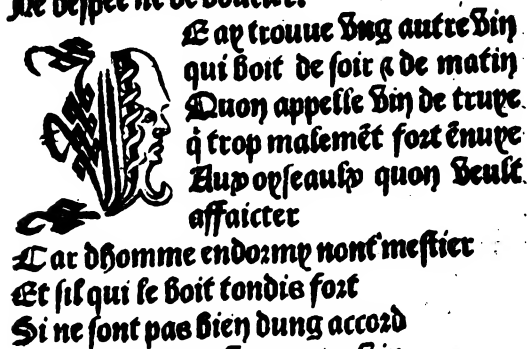 Ne despee ne de bouclier.
E ay trouue vng autre vin
qui boit de soir ⁊ de matin
Quon appelle vin de truye.
q̃ trop malemẽt fort ẽnuye
Aux oyseaulx quon veult
affaicter
Car dhomme endormy nont mestier
Et sil qui le boit tondis fort
Si ne sont pas bien dung accord